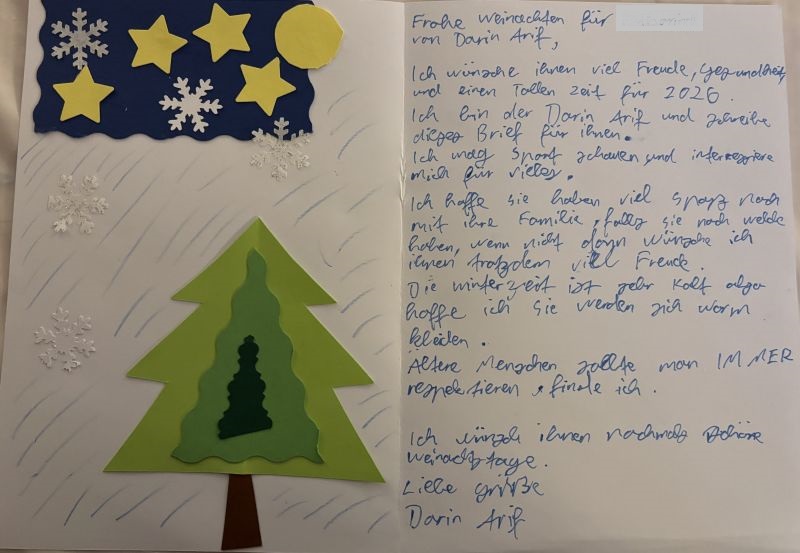 Frohe weinachten für
von Darin Arif,
Ich wünsche ihnen viel Freude, Gesundheit,
und einen Tollen zeit für 2026.
Ich bin der Darin Arif und schreibe
dieses Brief für ihnen.
Ich mag Sport schauen und interessiere
mich für vieles.
Ich hoffe sie haben viel Spasz nach
mit ihre Familie, falls sie noch welde
haben, wenn nicht dann wünsche ich
ihnen trotzdem viel Freude.
Die winterzeit ist sehr kalt also
hoffe ich sie werden sich warm
kleiden.
Ältere Menschen sollte man IMMER
respektieren, finde ich.
Ich wünsch ihnen nochmals schöne
weinachstage.
Liebe grüße
Darin Arif